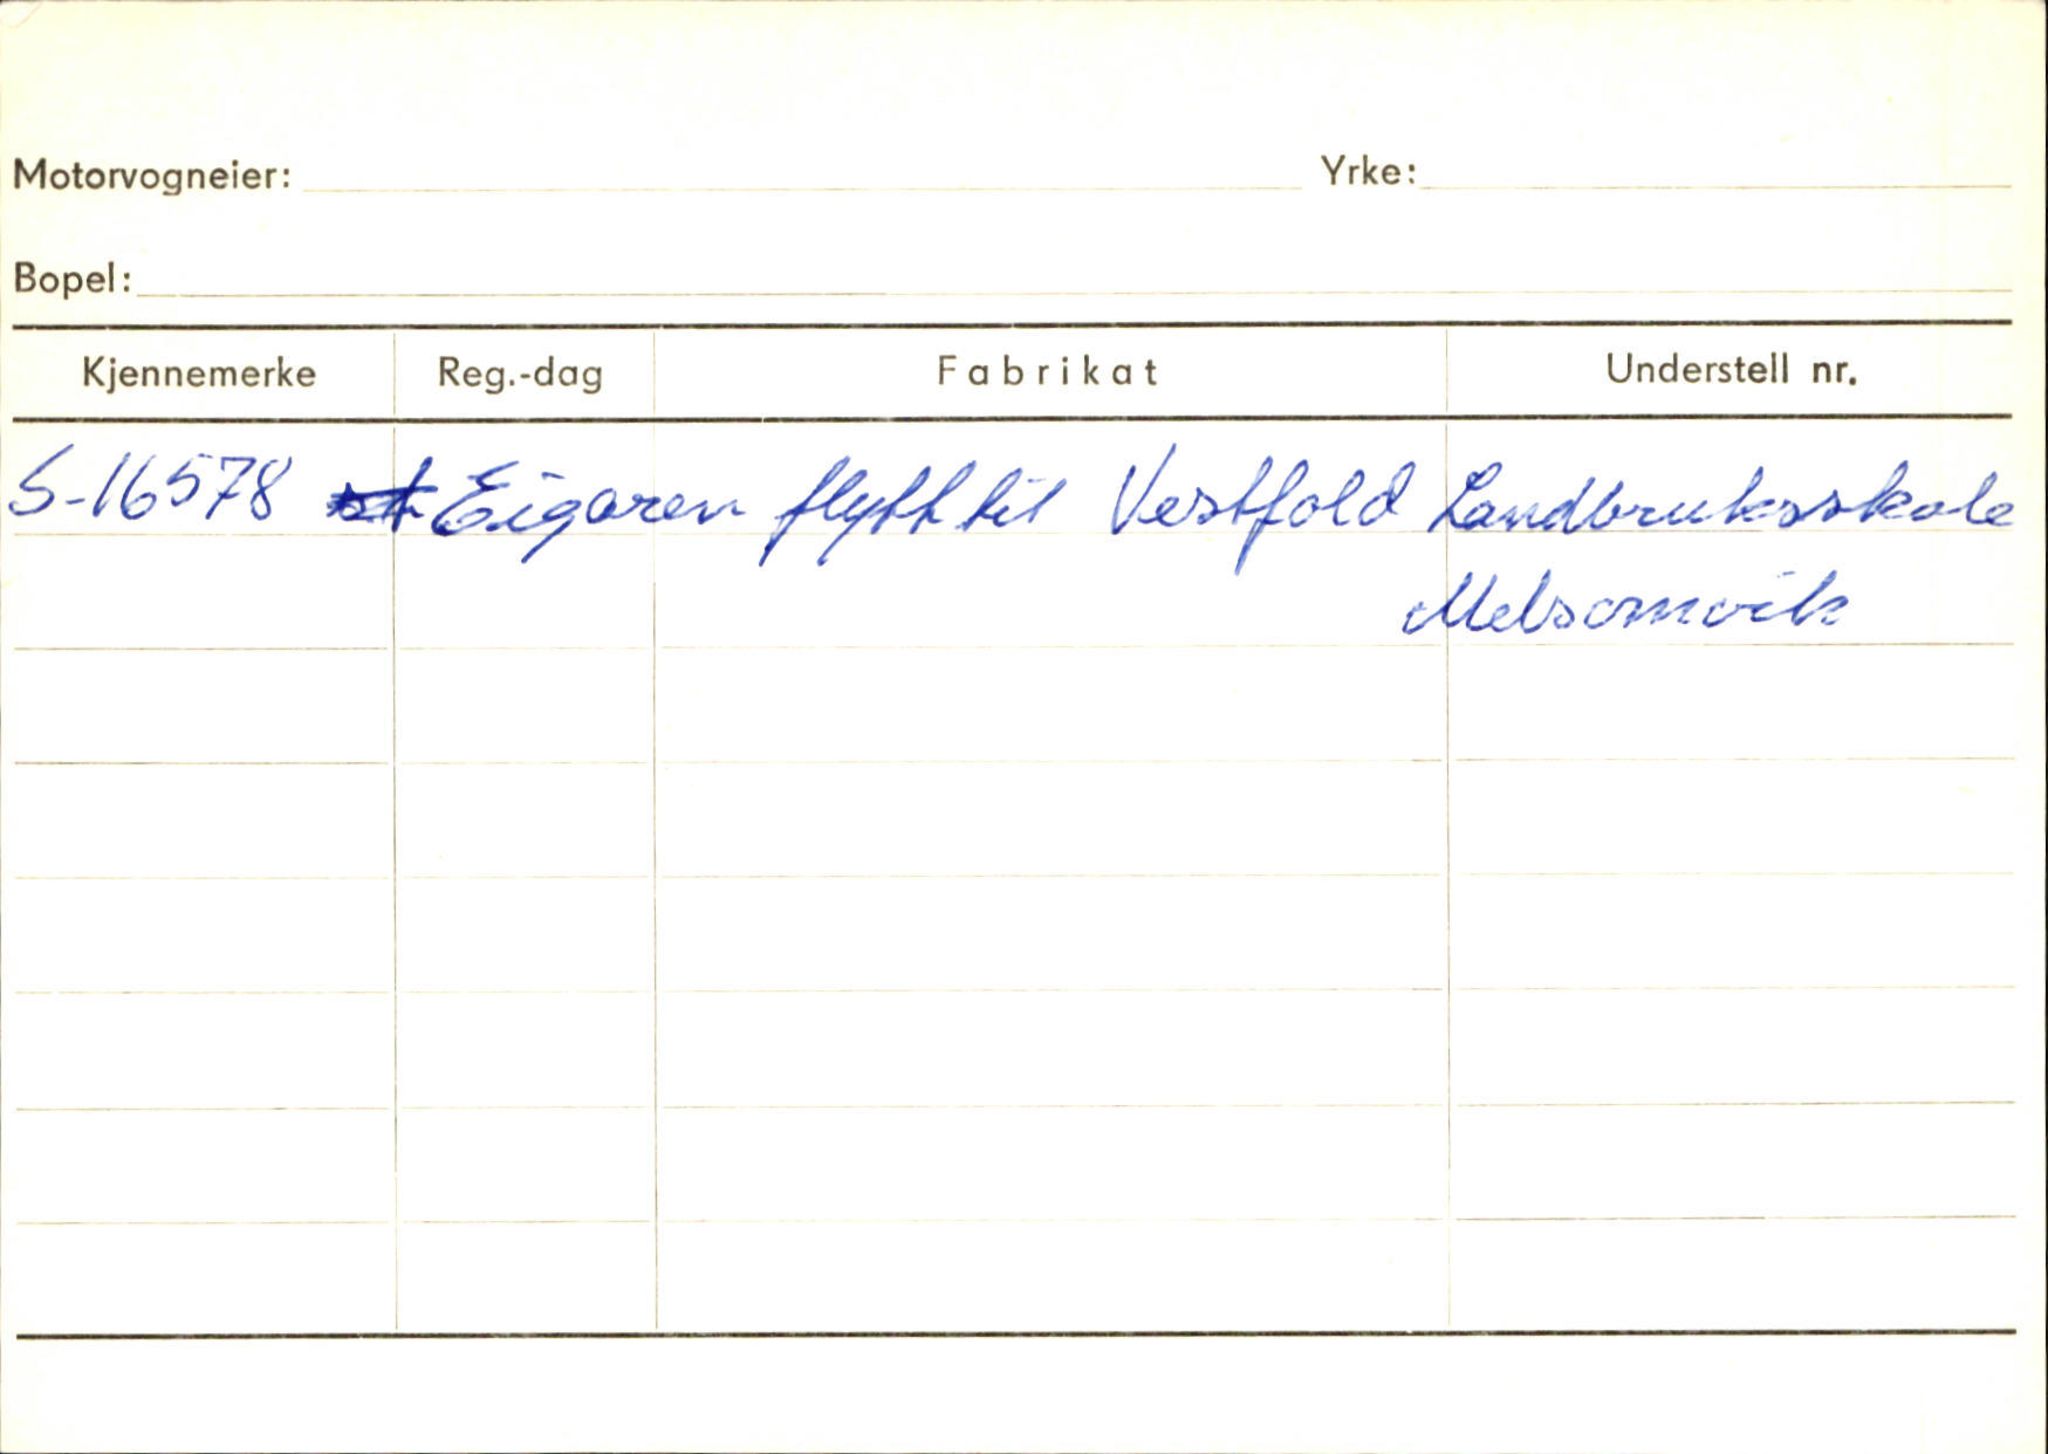 Motorvogneier: Yrke:
Bopel:
Kjennemerke Reg.-dag Fabrikat Understell nr.
S-16578 Eigaren flytt til Vestfold Landbruksskole
Melsomvik